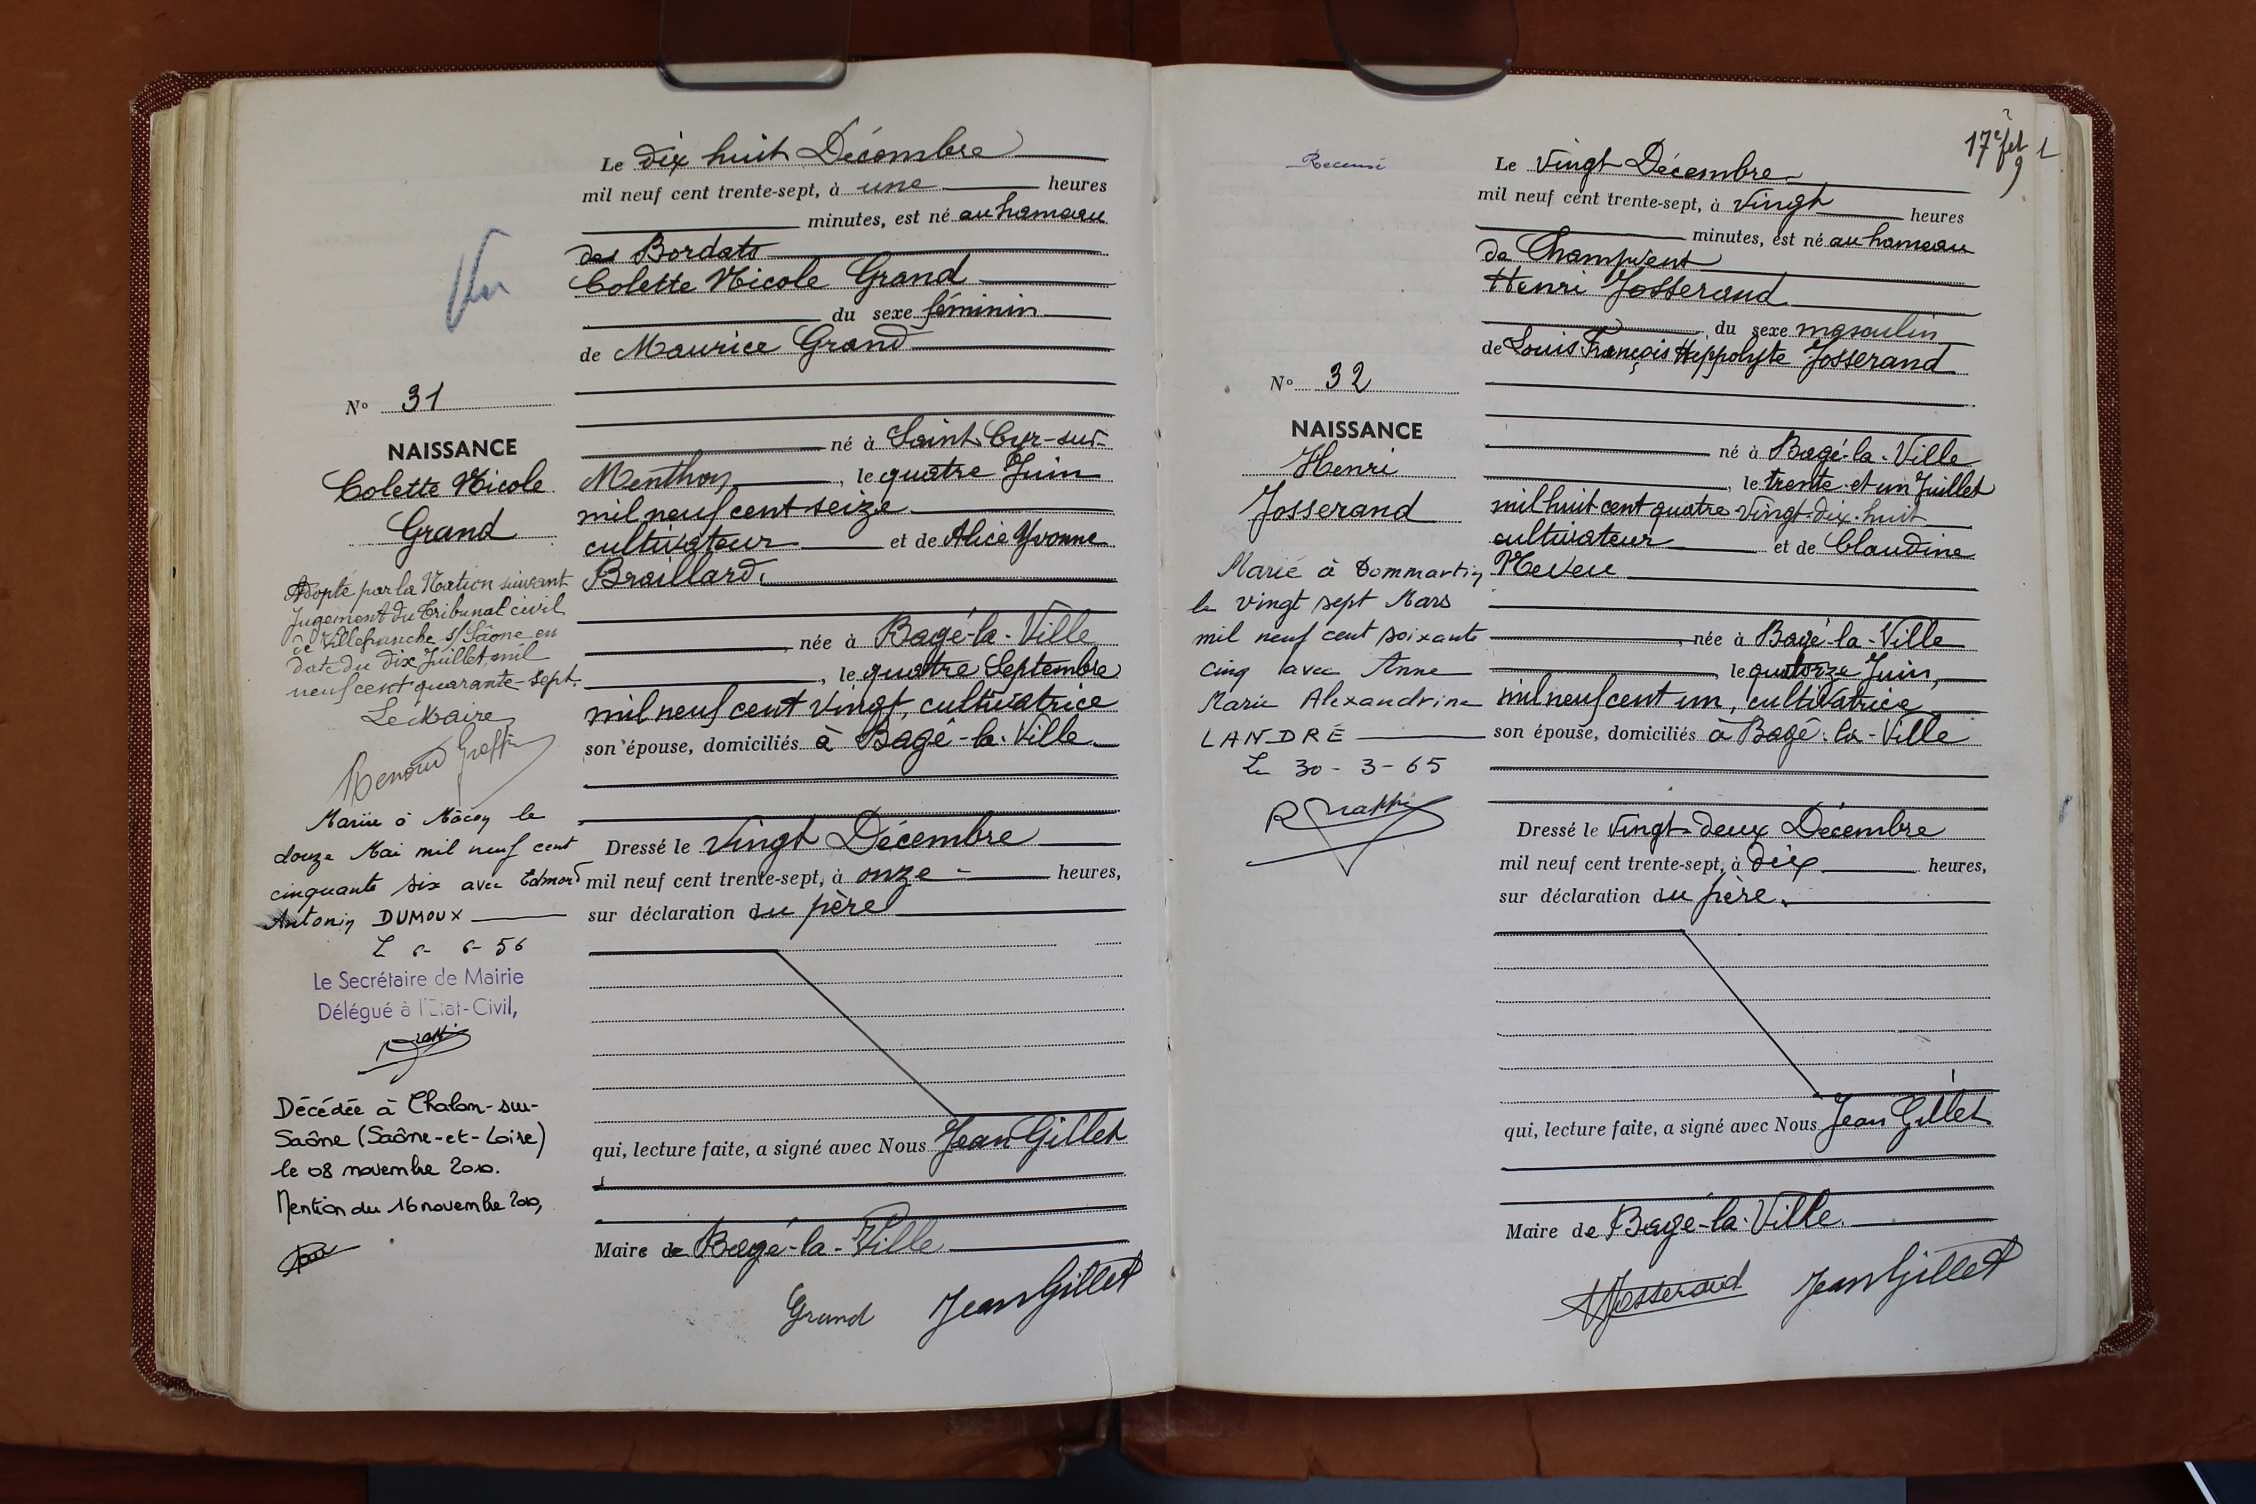 Vu
N° 31
NAISSANCE
Colette Nicole
Grand
Adopté par la Nation suivant
Jugement du Tribunal civil
de Villefranche s/ Saône en
date du dix Juillet mil
neuf cent quarante-sept.
Le Maire
Mariée à Mâcon le
douze Mai mil neuf cent
cinquante six avec Edmond
Antonin DUMOUX
6-56
Le Secrétaire de Mairie
Délégué à l'Etat-Civil,
Décédée à Chalon-sur-
Saône (Saône-et-Loire)
le 08 novembre 2010.
Mention du 16 novembre 2010,
Le dix huit Décembre
mil neuf cent trente-sept, à une heures
minutes, est né au hameau
des Bordats
Colette Nicole Grand
du sexe féminin
de Maurice Grand
né à Saint-Cyr-sur-
Menthon, le quatre Juin
mil neuf cent seize
cultivateur et de Alice Yvonne
Braillard.
née à Bagé-la-Ville
, le quatre Septembre
mil neuf cent vingt, cultivatrice
son épouse, domiciliés à Bagé-la-Ville
Dressé le vingt Décembre
mil neuf cent trente-sept, à onze heures,
sur déclaration du père
qui, lecture faite, a signé avec Nous Jean Gillet
Maire de Bagé-la-Ville
Grand Jean Gillet
17e
Recensé
N° 32
NAISSANCE
Henri
Josserand
Marié à Dommartin
le vingt sept Mars
mil neuf cent soixante
cinq avec Anne
Marie Alexandrine
LANDRÉ
Le 30-3-65
Le Vingt Décembre
mil neuf cent trente-sept, à vingt heures
minutes, est né au hameau
de Champvent
Henri Josserand
du sexe masculin
de Louis François Hippolyte Josserand
né à Bagé-la-Ville
, le trente-et-un Juillet
mil huit cent quatre-vingt-dix-huit
cultivateur et de Claudine
Neveu
, née à Bagé-la-Ville
le quatorze Juin,
mil neuf cent un, cultivatrice
son épouse, domiciliés à Bagé-la-Ville
Dressé le vingt-deux Décembre
mil neuf cent trente-sept, à dix heures,
sur déclaration du père.
qui, lecture faite, a signé avec Nous Jean Gillet
Maire de Bagé-la-Ville.
Josserand Jean Gillet